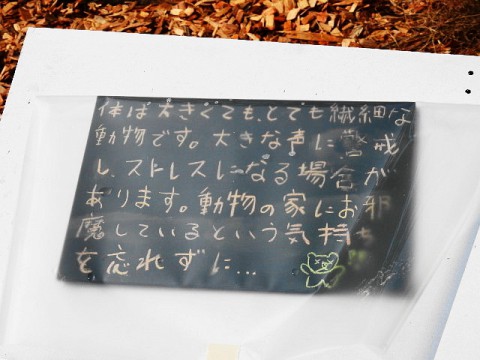 体は大きくても、とても繊細な
動物です。大きな声に警戒
し、ストレスになる場合が
あります。動物の家にお邪
魔しているという気持ち
を忘れずに…